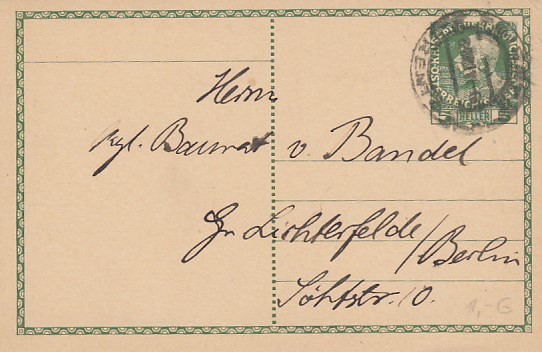 5 HELLER 5
Herrn
kgl. Baurat v. Bandel
Gr. Lichterfelde/Berlin
Söhtstr. 10.
1,- G